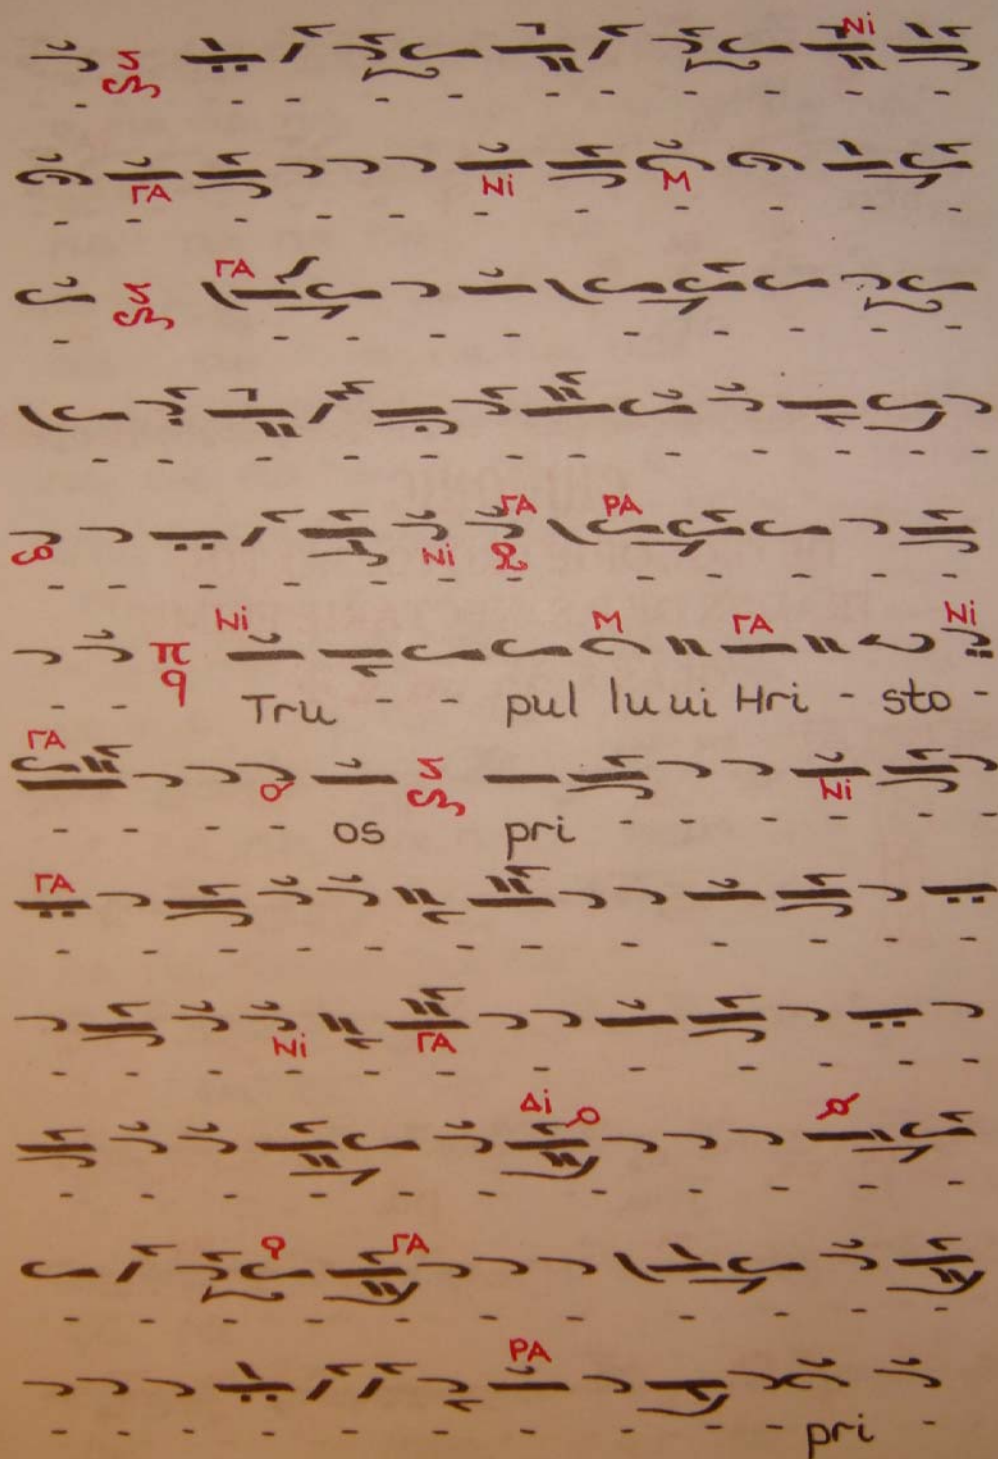 Ni
ΓΑ Ni M
ΓΑ
Ni ΓΑ ΡΑ
π q Ni M ΓΑ Ni
Tru - - pul lu ui Hri - sto -
ΓΑ Ni
- - - - os pri - - - - -
ΓΑ
Ni ΓΑ
Δi
ΓΑ
ΡΑ
pri -